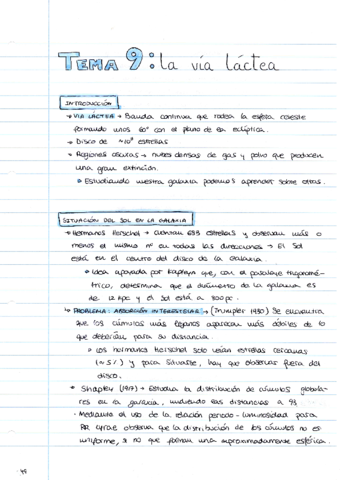 TEMA 9: la vía láctea
INTRODUCCIÓN
→ VÍA LÁCTEA → Banda continua que rodea la esfera celeste
formando unos 60° con el plano de la eclíptica.
→ Disco de estrellas
→ Regiones oscuras → nubes densas de gas y polvo que producen
una gran extinción.
• Estudiando nuestra galaxia podemos aprender sobre otras.
SITUACIÓN DEL SOL EN LA GALAXIA
→ Hermanos Herschel → cuentan 683 estrellas y observan más o
menos el mismo nº en todas las direcciones → El Sol
está en el centro del disco de la Galaxia.
• Idea apoyada por Kapteyn que, con el paralaje trigonomé-
trico, determina que el diámetro de la galaxia es
de 12 kpc y el Sol está a pc
↳ PROBLEMA: ABSORCIÓN INTERESTELAR → (Trumpler 1930) Se encuentra
que los cúmulos más lejanos aparecen más débiles de lo
que deberían para su distancia.
• Los hermanos Herschel solo veían estrellas cercanas
y para salvarse, hay que observar fuera del
disco.
• Shapley (1917) → Estudia la distribución de cúmulos globula-
res en la galaxia, midiendo las distancias a 93.
- Mediante el uso de la relación periodo-luminosidad para
RR Lyrae observa que la distribución de los cúmulos no es
uniforme, si no que forman una aproximadamente esférica.